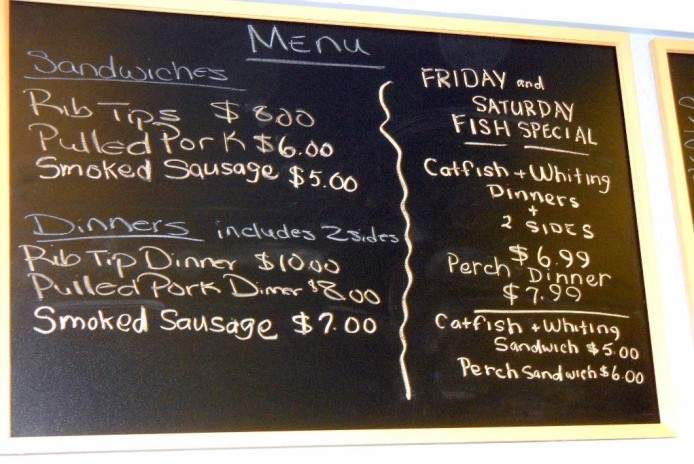 Menu
Sandwiches
Rib Tips $8.00
Pulled Pork $6.00
Smoked Sausage $5.00
Dinners includes 2 sides
Rib Tip Dinner $10.00
Pulled Pork Dinner $8.00
Smoked Sausage $7.00
FRIDAY and
SATURDAY
FISH SPECIAL
Catfish + Whiting
Dinners
+
2 SIDES
$6.99
Perch Dinner
$7.99
Catfish + Whiting
Sandwich $5.00
Perch Sandwich $6.00